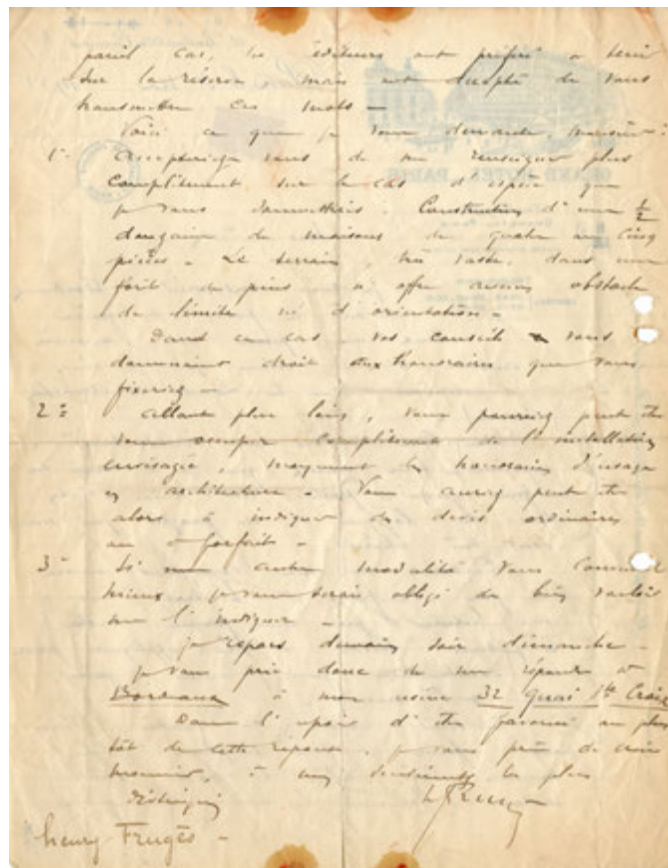 pareil cas, les éditeurs ont préféré se tenir
sur la réserve mais ont accepté de vous
transmettre ces mots –
Voici ce que je vous demande, Monsieur :
1° accepteriez vous de me renseigner plus
complètement sur le cas d'espèce que
je vous soumettrais. Construction d'une ½
douzaine de maisons de quatre ou cinq
pièces – Le terrain, très vaste, dans une
forêt de pins n'offre aucun obstacle
de limite ni d'orientation –
Dans ce cas vos conseils vous
donneraient droit aux honoraires que vous
fixeriez –
2° Allant plus loin, vous pourriez peut être
vous occuper complètement de l'installation
envisagée, moyennant les honoraires d'usage
en architecture – Vous auriez peut être
alors à indiquer des devis ordinaires
ou à forfait –
3° Si une autre modalité vous convient
mieux, je vous serais obligé de bien vouloir
me l'indiquer –
je repars demain soir dimanche –
je vous prie donc de me répondre à
Bordeaux à mon usine 32 Quai Ste Croix
Dans l'espoir d'être favorisé au plus
tôt de cette réponse, je vous prie de croire
Monsieur, à mes sentiments les plus
distingués
henry Frugès –
GRAND HOTEL, PARIS